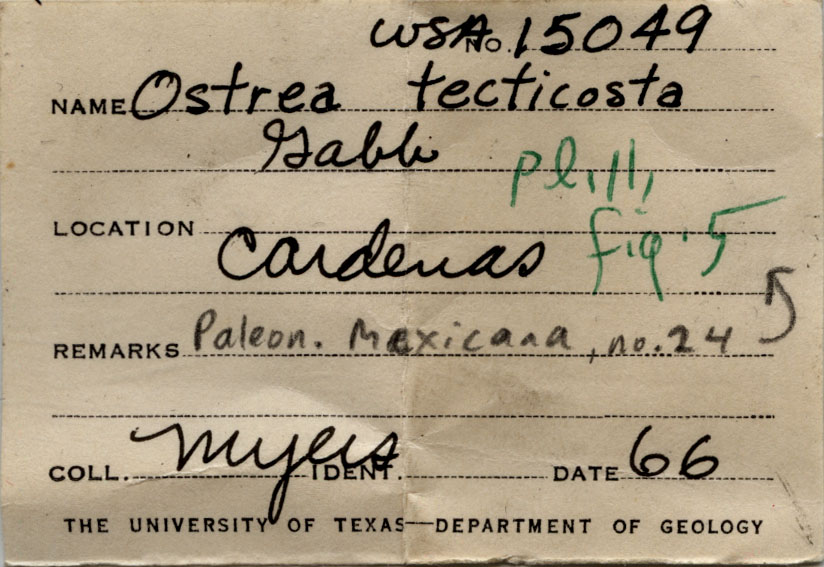 WSA No. 15049
NAME Ostrea tecticosta
Gabb
pl. 11,
LOCATION Cardenas
fig. 5
REMARKS Paleon. Mexicana, no. 24
COLL. Myers IDENT. DATE 66
THE UNIVERSITY OF TEXAS—DEPARTMENT OF GEOLOGY